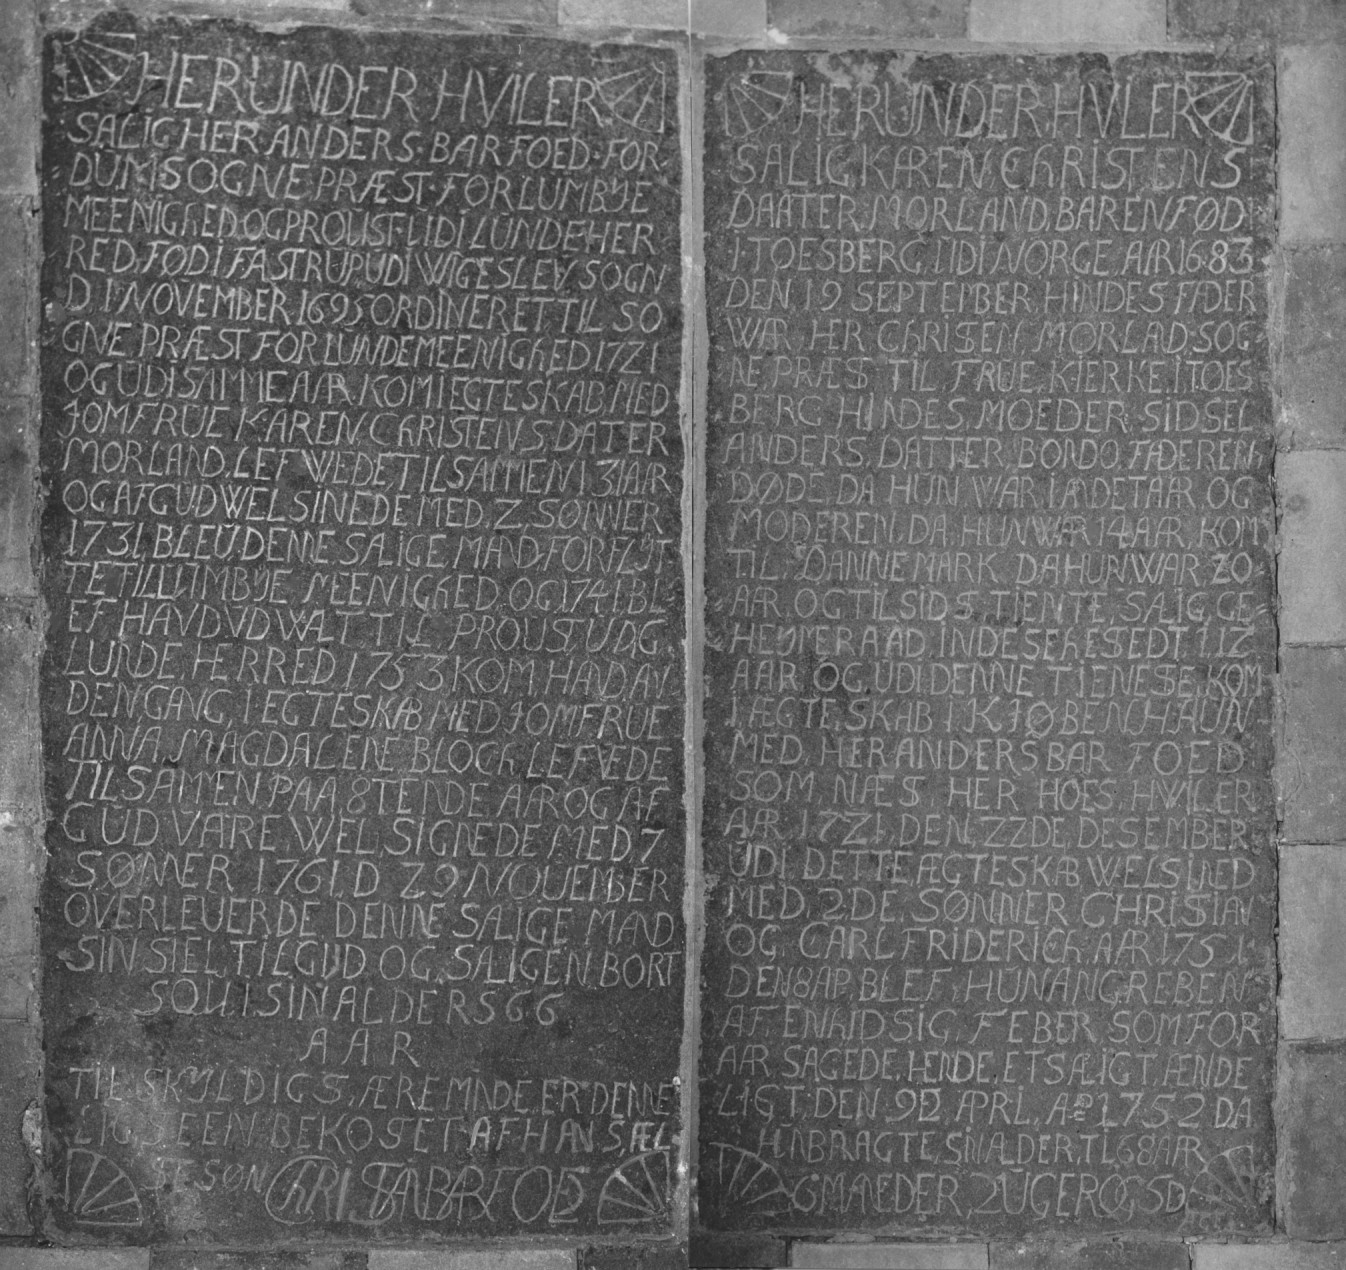 HERUNDER HVILER
SALIG HER ANDERS BARFOED FOR
DUM SOGNE PRÆST FOR LUMBYE
MEENIGHED OG PROUIST UDI LUNDE HER
RED FØD I FASTRUP UDI WIGESLEV SOGN
D 1 NOVEMBER 1695 ORDINERET TIL SO
GNE PRÆST FOR LUNDE MEENIGHED 1721
OG UDI SAMME AAR KOM I EGTESKAB MED
JOMFRUE KAREN CHRISTENS DATER
MORLAND LEFWEDE TILSAMMEN I 31 AAR
OG AF GUD WEL SINEDE MED 2 SØNNER
1731 BLEU DENNE SALIGE MAND FORFLÿT
TE TIL LUMBYE MEENIGHED OG 1741 BL
EF HAND UDWALT TIL PROUST UDI
LUNDE HERRED 1753 KOM HAND AN
DEN GANG I EGTESKAB MED JOMFRUE
ANNA MAGDALENE BLOCK LEFVEDE
TILSAMEN PAA 8TENDE AAR OG AF
GUD VARE WEL SIGNEDE MED 7
SØNNER 1761 D 29 NOUEMBER
OVERLEUERDE DENNE SALIGE MAND
SIN SIEL TIL GUD OG SALIGEN BORT
SOU I SIN ALDERS 66
AAR
TIL SKYLDIGST ÆREMINDE ER DENNE
LIGSTEEN BEKOSTET AF HANS ÆL
ST SØN CHRISTIAN BARFOED
HERUNDER HVILER
SALIG KAREN CHRISTENS
DAATER MORLAND BAREN FØD
I TOESBERG UDI NORGE AAR 1683
DEN 19 SEPTEMBER HINDES FADER
WAR HER CHRISEN MORLAD SOG
NE PRÆS TIL FRUE KIERKE I TOES
BERG HINDES MOEDER SIDSEL
ANDERS DATTER BONDO FADEREN
DØDE DA HUN WAR I ÆDET AAR OG
MODEREN DA HUN WAR 14 AAR KOM
TIL DANNEMARK DA HUN WAR 20
AAR OG TIL SIDST TIENTE SALIG GE
HEYMERAAD INDESEHESEDT I 12
AAR OG UDI DENNE TIENESE KOM
I ÆGTESKAB I KIØBENHAUN
MED HER ANDERS BARFOED
SOM NÆST HER HOES HWILER
AAR 1721 DEN 22DE DESEMBER
UDI DETTE ÆGTESKAB WELSINED
MED 2DE SØNNER CHRISTIAN
OG CARL FRIDERICH AAR 1751
DEN 8 AP BLEF HUN ANGREBEN
AF EN HIDSIG FEBER SOM FOR
AARSAGEDE HENDE ET SALIGT ÆNDE
LIGT DEN 9D APRL A° 1752 DA
HN BRAGTE SIN ALDER TL 68 AAR
6 MAEDER 2 UGER OG 5 D